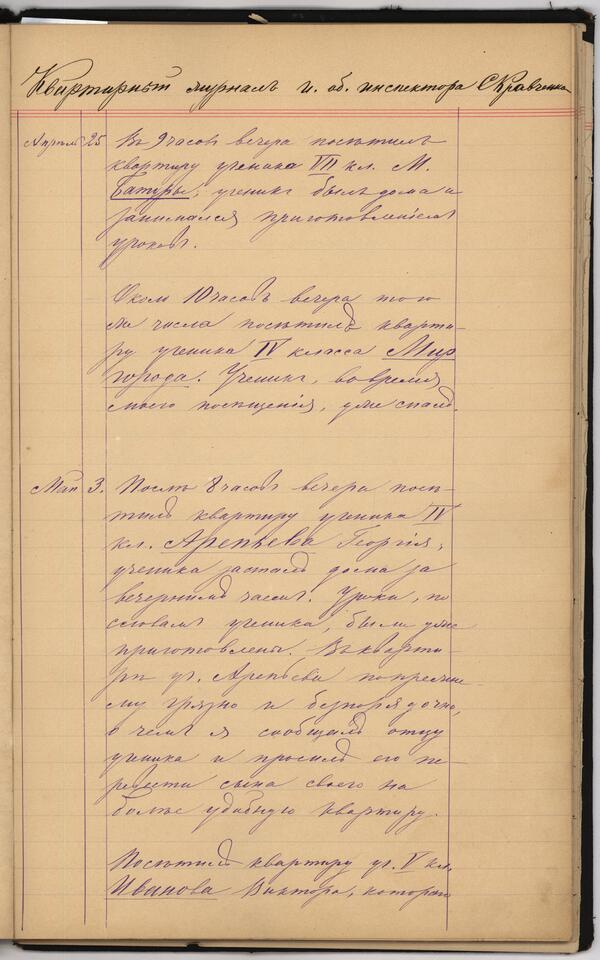 Квартирный журналъ и. об. инспектора С Кравченка
Апрѣль 25 Въ 9 часов вечера посѣтилъ
квартиру ученика VII кл. М.
Батуры, ученикъ былъ дома и
занимался приготовленіемъ
уроковъ.
Около 10 часовъ вечера того
же числа посѣтилъ кварти-
ру ученика IV класса Мир
города. Ученикъ, во время
моего посѣщенія, уже спалъ.
Мая 3. Послѣ 8 часовъ вечера посѣ-
тилъ квартиру ученика IV
кл. Арепьева Георгія,
ученика засталъ дома за
вечернимъ чаемъ. Уроки, по
словамъ ученика, были уже
приготовлены. Въ кварти-
рѣ уч. Арепьева попрежне-
му грязно и безпорядочно,
о чемъ я сообщилъ отцу
ученика и просилъ его пе-
ревести сына своего на
болѣе удобную квартиру.
Посѣтилъ квартиру уч. V кл.
Иванова Виктора, котораго